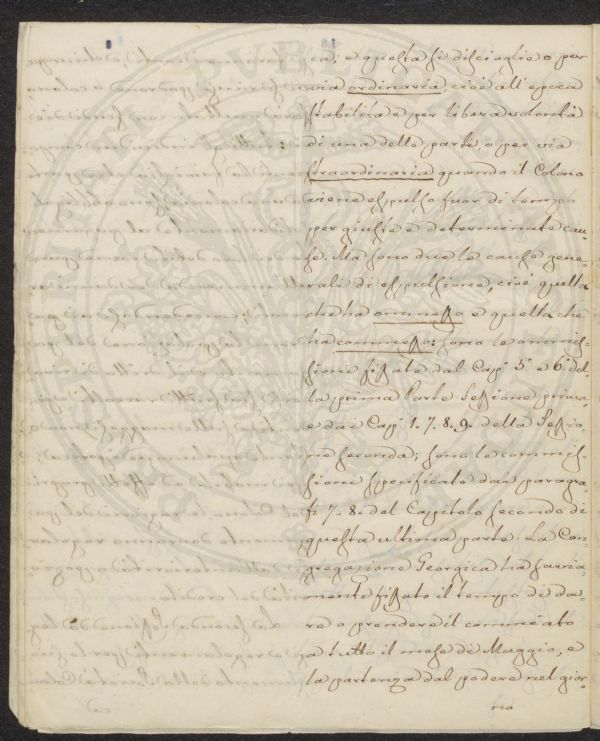 ca; e questa si discioglie o per
via ordinaria, cioè all'epoca
stabilita e per libera volontà
di una delle parti, o per via
straordinaria quando il Colono
viene espulso fuor di tempo
per giuste e determinate cau-
se. Ma sono due le cause gene-
rali di espulsione, cioè quella
che ha ommesso e quella che
ha commesso: sono le ommis-
sioni fissate dal Cap.i 5.° e 6.° del
la prima Parte Sessione prima,
e dai Cap.i 1. 7. 8. 9. della Sessio-
ne seconda; sono le commis-
sioni specificate dai paragra
fi 7. 8. del Capitolo secondo di
questa ultima parte. La Con-
gregazione Georgica ha savia-
mente fissato il tempo di da-
re o prendere il commiato
a tutto il mese di Maggio, e
la partenza dal podere nel gior-
no